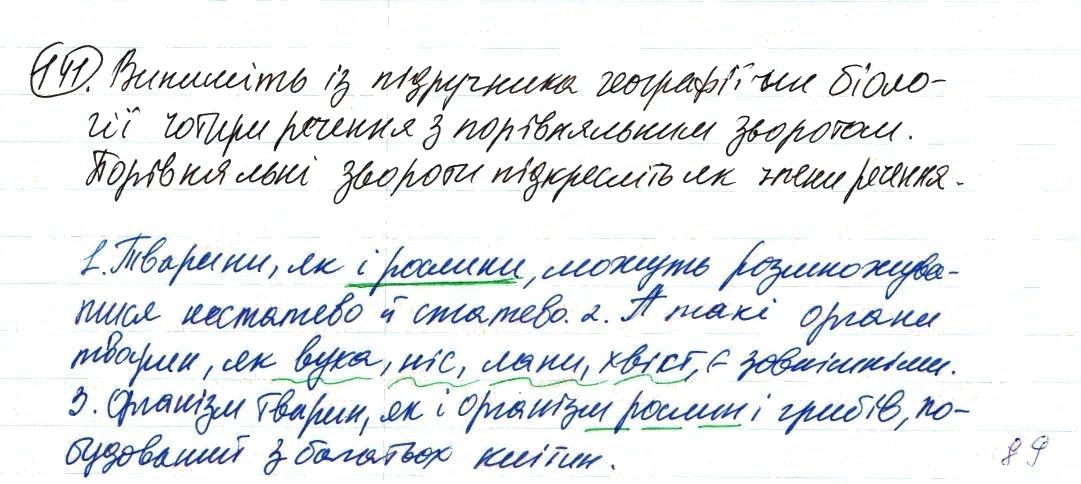 141. Випишіть із підручника географії чи біоло-
гії чотири речення з порівняльним зворотом.
Порівняльні звороти підкресліть як члени речення.
1. Тварини, як і рослини, можуть розмножува-
тися нестатево й статево. 2. А такі органи
тварин, як вуха, ніс, лапи, хвіст, є зовнішніми.
3. Організм тварин, як і організм рослин і грибів, по-
будований з багатьох клітин.
89